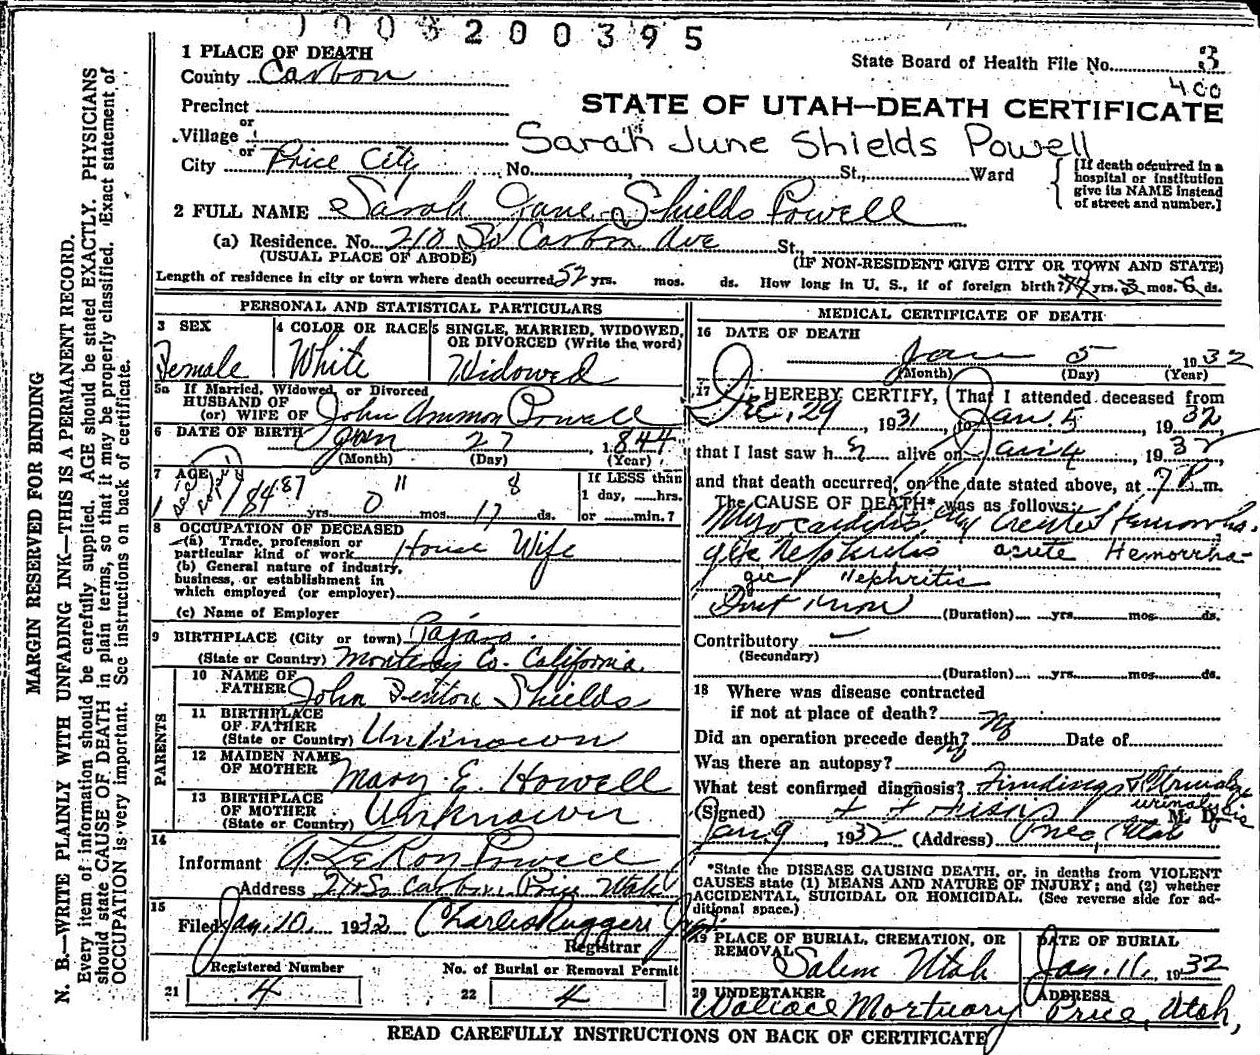 1003200395
1 PLACE OF DEATH
State Board of Health File No. 3
County Carbon
400
Precinct
STATE OF UTAH—DEATH CERTIFICATE
or
Village
Sarah June Shields Powell
or
City Price City No. St., Ward
[If death occurred in a hospital or institution give its NAME instead of street and number.]
2 FULL NAME Sarah Jane Shields Powell
(a) Residence. No. 210 So Carbon Ave St,
(USUAL PLACE OF ABODE) (IF NON-RESIDENT GIVE CITY OR TOWN AND STATE)
Length of residence in city or town where death occurred 52 yrs. mos. ds. How long in U. S., if of foreign birth? yrs. mos. ds.
PERSONAL AND STATISTICAL PARTICULARS
3 SEX
Female
4 COLOR OR RACE
White
5 SINGLE, MARRIED, WIDOWED, OR DIVORCED (Write the word)
Widowed
5a If Married, Widowed, or Divorced
HUSBAND OF
(or) WIFE OF John Ammon Powell
6 DATE OF BIRTH Jan 27, 1844
(Month) (Day) (Year)
7 AGE
87 11 8
yrs. 0 mos. 17 ds.
If LESS than
1 day, hrs.
or min.?
8 OCCUPATION OF DECEASED
(a) Trade, profession or
particular kind of work House Wife
(b) General nature of industry,
business, or establishment in
which employed (or employer)
(c) Name of Employer
9 BIRTHPLACE (City or town) Pajaro
(State or Country) Monterey Co. California
PARENTS
10 NAME OF
FATHER John Fenton Shields
11 BIRTHPLACE
OF FATHER
(State or Country) Unknown
12 MAIDEN NAME
OF MOTHER Mary E. Howell
13 BIRTHPLACE
OF MOTHER
(State or Country) Unknown
14
Informant A. LeRoy Powell
Address 210 So Carbon, Price Utah
15
Filed Jan. 10. 1932 Charles Ruggeri Jr.
Registrar
Registered Number
21 4
No. of Burial or Removal Permit
22 4
MEDICAL CERTIFICATE OF DEATH
16 DATE OF DEATH
Jan 5 1932
(Month) (Day) (Year)
17 I HEREBY CERTIFY, That I attended deceased from
Dec. 29, 1931, to Jan. 5, 1932,
that I last saw her alive on Jan 4, 1932
and that death occurred, on the date stated above, at 7 P m.
The CAUSE OF DEATH* was as follows:
Myocarditis Hemorrha-
gic Nephritis acute Hemorrha-
gic Nephritis
Dont Know (Duration) yrs. mos. ds.
Contributory
(Secondary)
(Duration) yrs. mos. ds.
18 Where was disease contracted
if not at place of death?
Did an operation precede death? No Date of
Was there an autopsy? No
What test confirmed diagnosis? Findings & Urinalysis
urinalysis
(Signed) M. D.
Jan 9, 1932 (Address) Price, Utah
*State the DISEASE CAUSING DEATH, or, in deaths from VIOLENT
CAUSES state (1) MEANS AND NATURE OF INJURY; and (2) whether
ACCIDENTAL, SUICIDAL OR HOMICIDAL. (See reverse side for ad-
ditional space.)
19 PLACE OF BURIAL, CREMATION, OR
REMOVAL
Salem Utah
DATE OF BURIAL
Jan. 11, 1932
20 UNDERTAKER
Wallace Mortuary
ADDRESS
Price, Utah,
READ CAREFULLY INSTRUCTIONS ON BACK OF CERTIFICATE
MARGIN RESERVED FOR BINDING
N. B.—WRITE PLAINLY WITH UNFADING INK—THIS IS A PERMANENT RECORD.
Every item of information should be carefully supplied. AGE should be stated EXACTLY. PHYSICIANS
should state CAUSE OF DEATH in plain terms, so that it may be properly classified. Exact statement of
OCCUPATION is very important. See instructions on back of certificate.